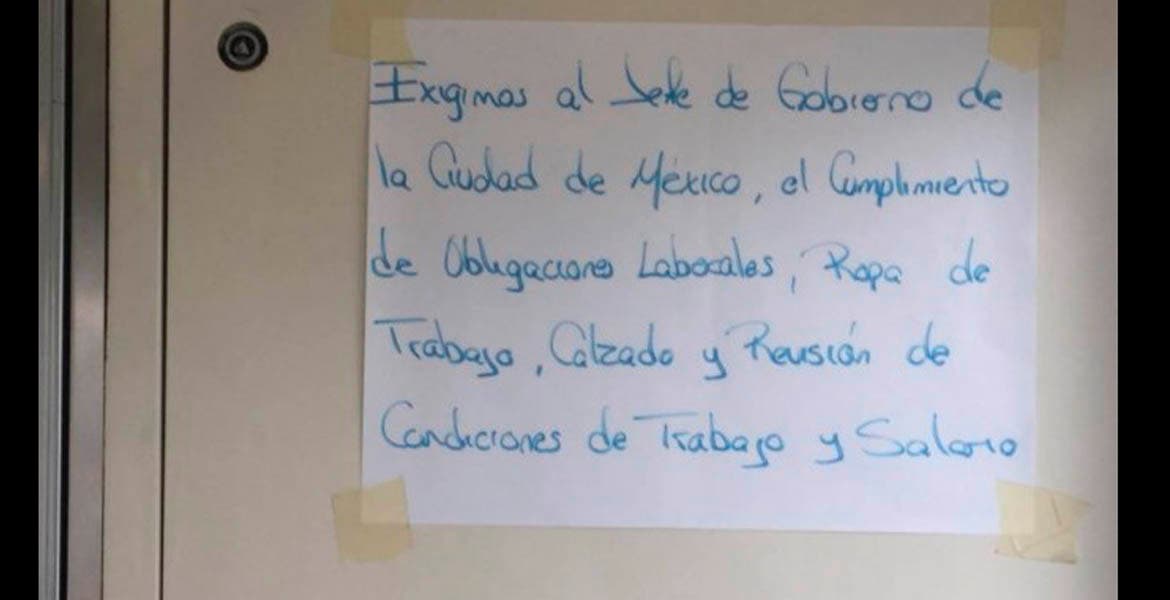 Exigimos al Jefe de Gobierno de
la Ciudad de México, el Cumplimiento
de Obligaciones Laborales, Ropa de
Trabajo, Calzado y Revisión de
Condiciones de Trabajo y Salario